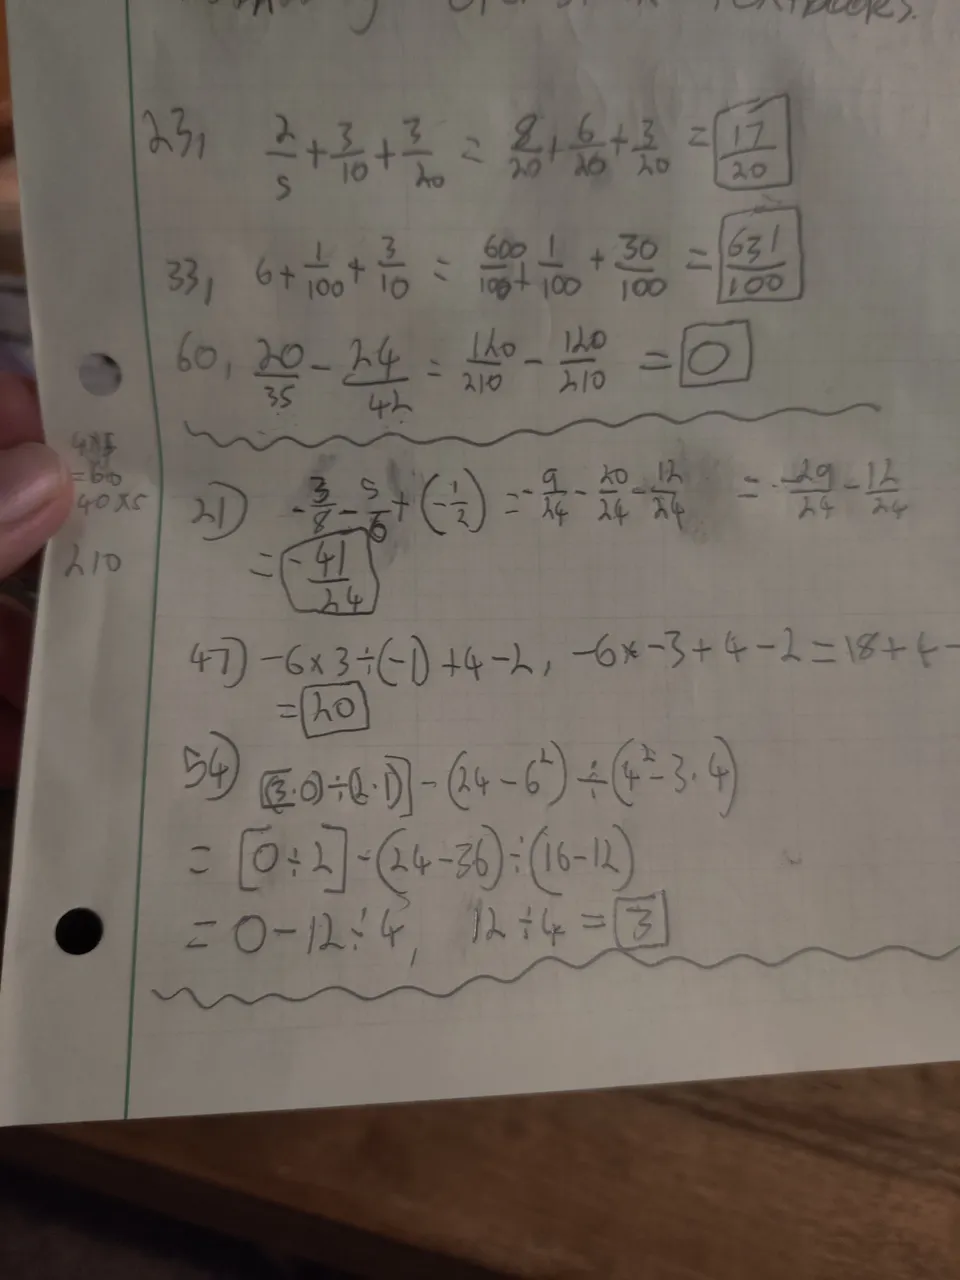 Textbooks.
23, 2/5 + 3/10 + 3/20 = 8/20 + 6/20 + 3/20 = 17/20
33, 6 + 1/100 + 3/10 = 600/100 + 1/100 + 30/100 = 631/100
60, 20/35 - 24/42 = 120/210 - 120/210 = 0
= 60
40 x 5
210
21) -3/8 - 5/6 + (-1/2) = -9/24 - 20/24 - 12/24 = -29/24 - 12/24
= -41/24
47) -6 x 3 ÷ (-1) + 4 - 2, -6 x -3 + 4 - 2 = 18 + 4 -
= 20
54) [(3·0) ÷ (2·1)] - (24 - 6²) ÷ (4² - 3·4)
= [0 ÷ 2] - (24 - 36) ÷ (16 - 12)
= 0 - 12 ÷ 4, 12 ÷ 4 = 3